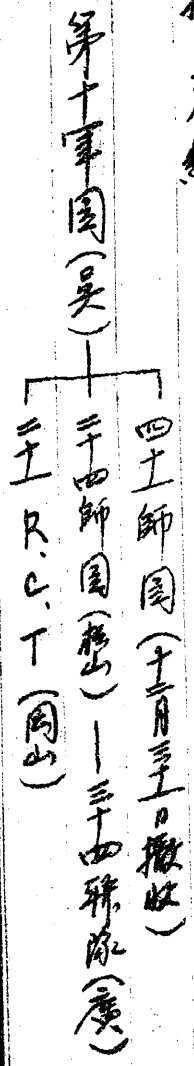 第十軍團(吳)
四十一師團(十二月三十一日撤收)
二十四師團(松山)—三十四聯隊(廣)
二十一R.C.T(岡山)